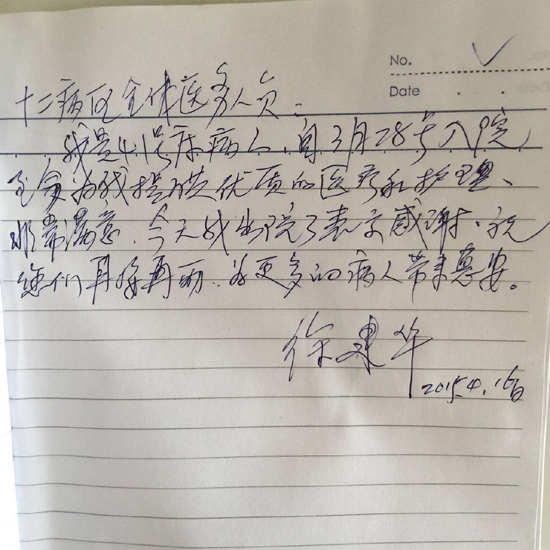 No.
Date
十二病区全体医务人员:
我是41号床病人,自3月28号入院
至今为我提供优质的医疗和护理、
非常满意.今天我出院了表示感谢.祝
您们再接再厉.为更多的病人带来慈安。
徐建华
2015.4.16日